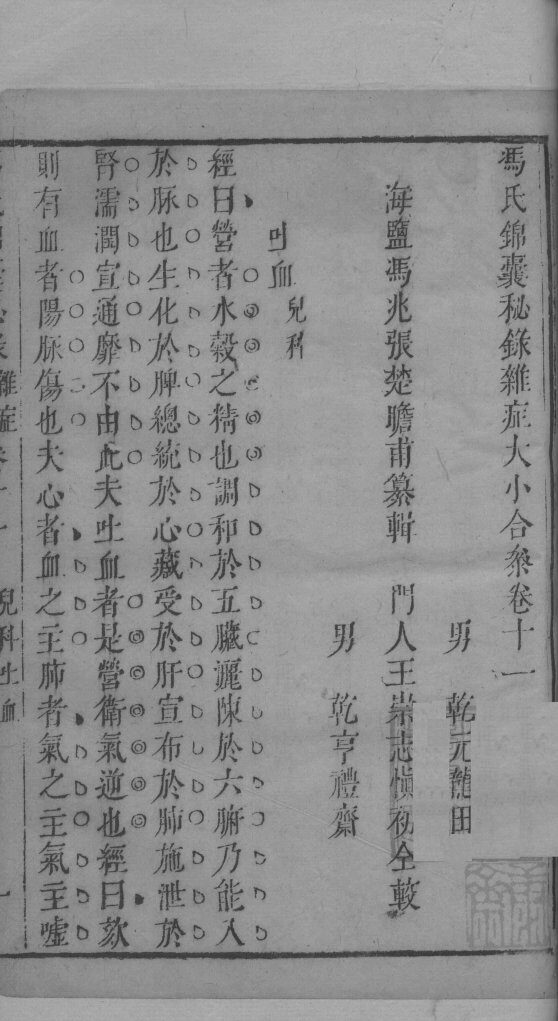 馮氏錦囊秘錄雜症大小合叅卷十一
男 乾元龍田
海鹽馮兆張楚瞻甫纂輯 門人王崇志慎初仝較
男 乾亨禮齋
吐血兒科
經曰營者水穀之精也調和於五臟灑陳於六腑乃能入
於脉也生化於脾總統於心藏受於肝宣布於肺施泄於
腎濡潤宣通靡不由此夫吐血者是營衛氣逆也經曰欬
則有血者陽脉傷也夫心者血之主肺者氣之主氣主噓
雜症卷十一 兒科吐血 一